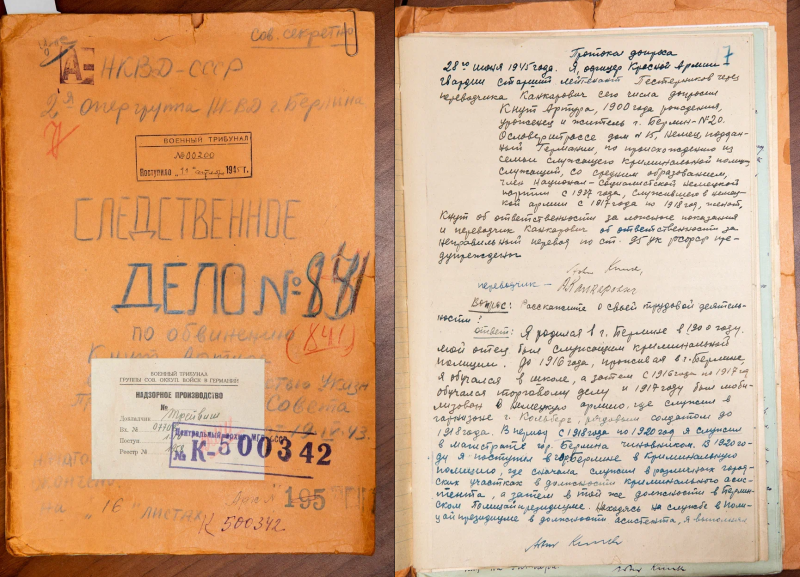 Сов. секретно
НКВД-СССР
2я опергруппа НКВД г. Берлина
ВОЕННЫЙ ТРИБУНАЛ
№00200
Поступило „11" 1945 г.
СЛЕДСТВЕННОЕ
ДЕЛО № 841
по обвинению
(841)
Указа
Совета
19.IV-43.
ВОЕННЫЙ ТРИБУНАЛ
ГРУППЫ СОВ. ОККУП. ВОЙСК В ГЕРМАНИИ
НАДЗОРНОЕ ПРОИЗВОДСТВО
№
Докладчик
Вх. №
Поступ.
Реестр №
Центральный архив МГБ СССР
№ К-500342
195
на „16" листах
К 500342
7
Протокол допроса
28го июня 1945 года. Я, офицер Красной армии
гвардии старший лейтенант Пестерников через
переводчика Канкарович сего числа допросил
Кнут Артура, 1900 года рождения,
уроженец и житель г. Берлин-N20.
дом N 15, немец, поддан-
ный Германии, по происхождению из
семьи служащего криминальной полиции,
служащий, со средним образованием,
член Национал-социалистской немецкой
партии с 1937 года, служивший в немец-
кой армии с 1917 года по 1918 год, женат,
Кнут об ответственности за ложные показания
и переводчик Канкарович об ответственности за
неправильный перевод по ст. 95 УК РСФСР пре-
дупреждены
переводчик – Канкарович
Вопрос: Расскажите о своей трудовой деятель-
ности!
Ответ: Я родился в г. Берлине в 1900 году.
Мой отец был служащим криминальной
полиции. До 1916 года, проживая в г. Берлине,
я обучался в школе, а затем с 1916 года по 1917 год
обучался торговому делу и 1917 году был моби-
лизован в Немецкую армию, где служил в
гарнизоне г. Кольберг, рядовым солдатом до
1918 года. В период с 1918 года по 1920 год я служил
в магистрате гор. Берлина чиновником. В 1920 го-
ду я поступил в гор. Берлине в криминальную
полицию, где сначала служил в различных город-
ских участках в должности криминального асис-
тента, а затем в той же должности в Берлин-
ском полицайпрезидиуме. Находясь на службе в Поли-
цайпрезидиуме в должности асистента, я выполнял